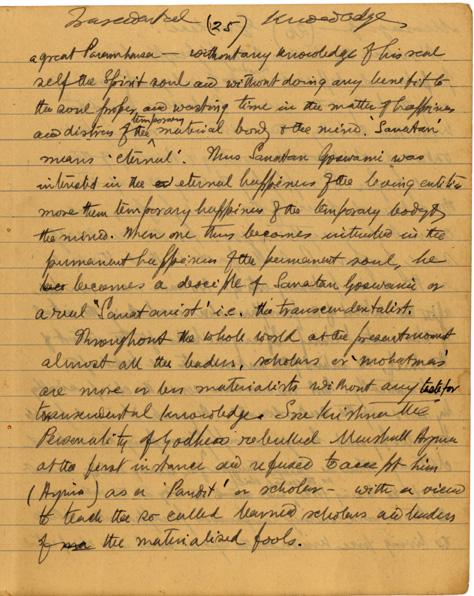 Transcendental (25) Knowledge
a great Paramhansa – without any knowledge of his real
self the Spirit soul and without doing any benefit to
the soul proper and wasting time in the matter of happiness
and distress of the temporary material body & the mind. 'Sanatan'
means 'eternal'. Thus Sanatan Goswami was
interested in the eternal happiness of the living entities
more than temporary happiness of the temporary body &
the mind. When one thus becomes interested in the
permanent happiness of the permanent soul, he
becomes a disciple of Sanatan Goswami or
a real 'Sanatanist' i.e. the transcendentalist.
Throughout the whole world at the present moment
almost all the leaders, scholars or 'mohatmas'
are more or less materialists without any taste for
transcendental knowledge. Sree Krishna the
Personality of Godhead rebuked Marshall Arjuna
at the first instance and refused to accept him
(Arjuna) as a 'Pandit' or scholar – with a view
to teach the so called learned scholars and leaders
of the materialised fools.